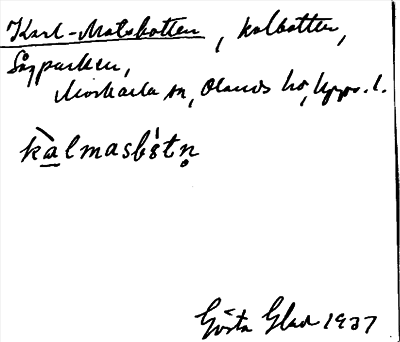 Karl-Matsbotten, kolbotten,
Sågparken,
Morkarla sn, Olands hd, Upps. l.
kàlmasbótn̥
Gösta Glad 1937